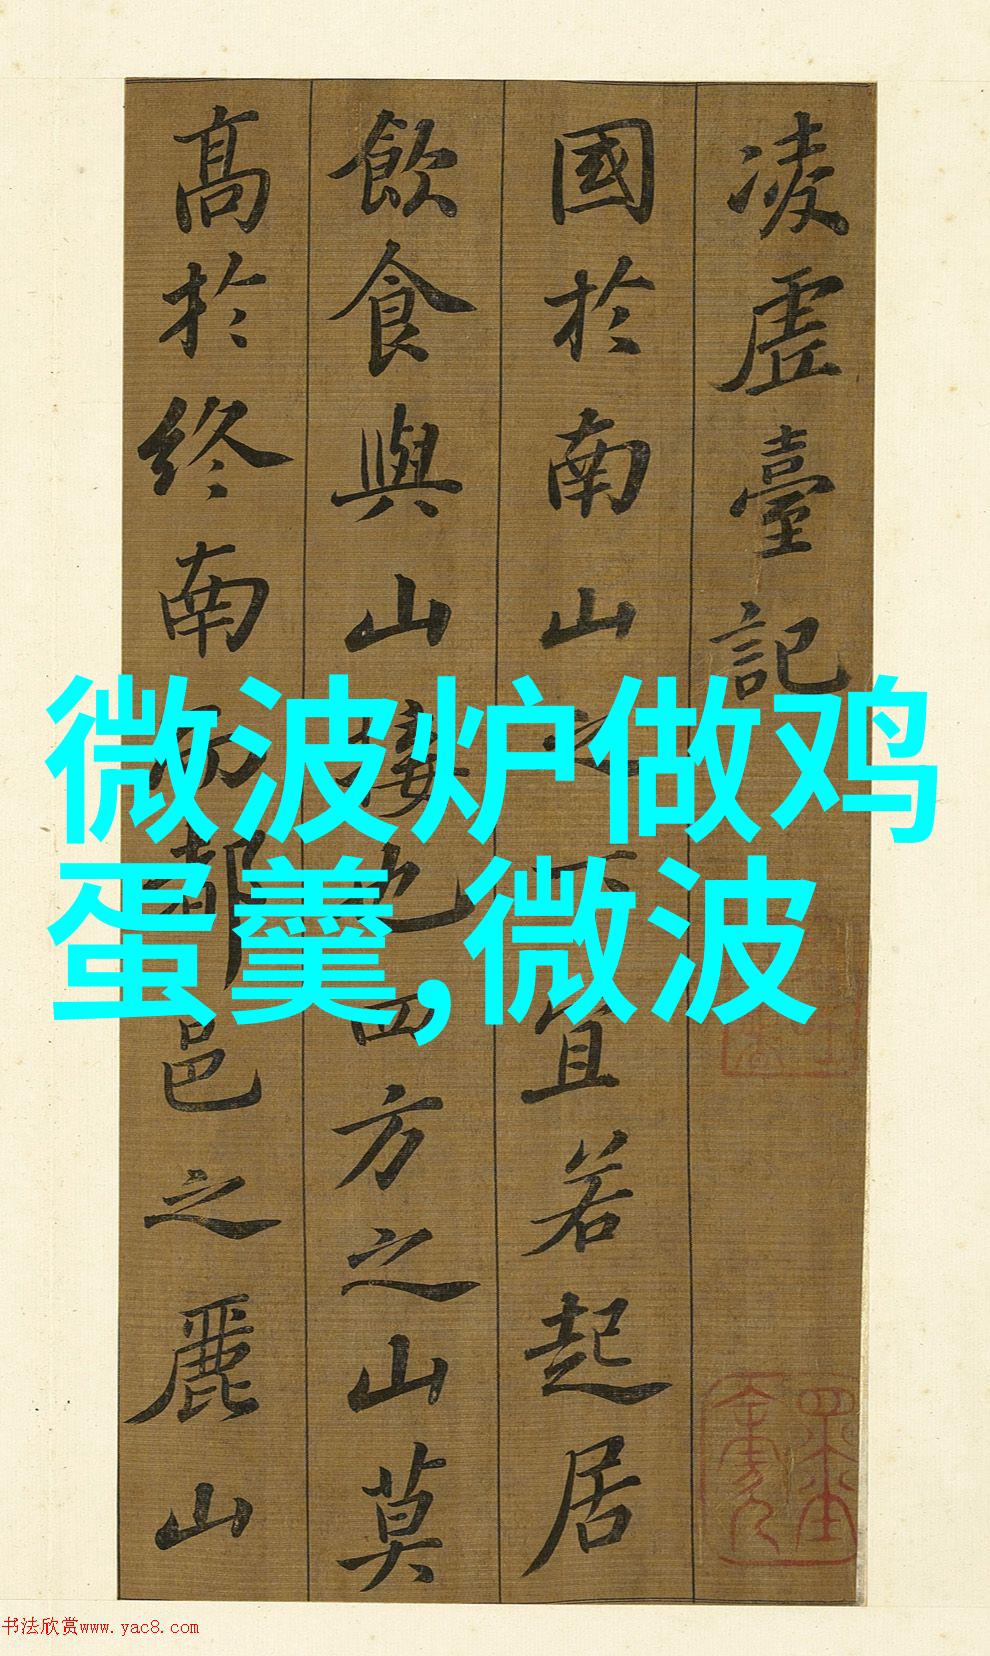 凌虛臺記
國於南山之下宜若起居
飲食與山接也四方之山莫
高於終南而都邑之麗山
微波炉做鸡
蛋羹,微波
书法欣赏www.yac8.com